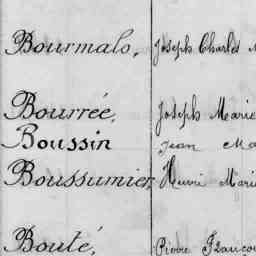 Bourmalo, Joseph Charles
Bourrée, Joseph Marie
Boussin Jean Ma
Boussumier, Henri Marie
Bouté, Pierre Francoi